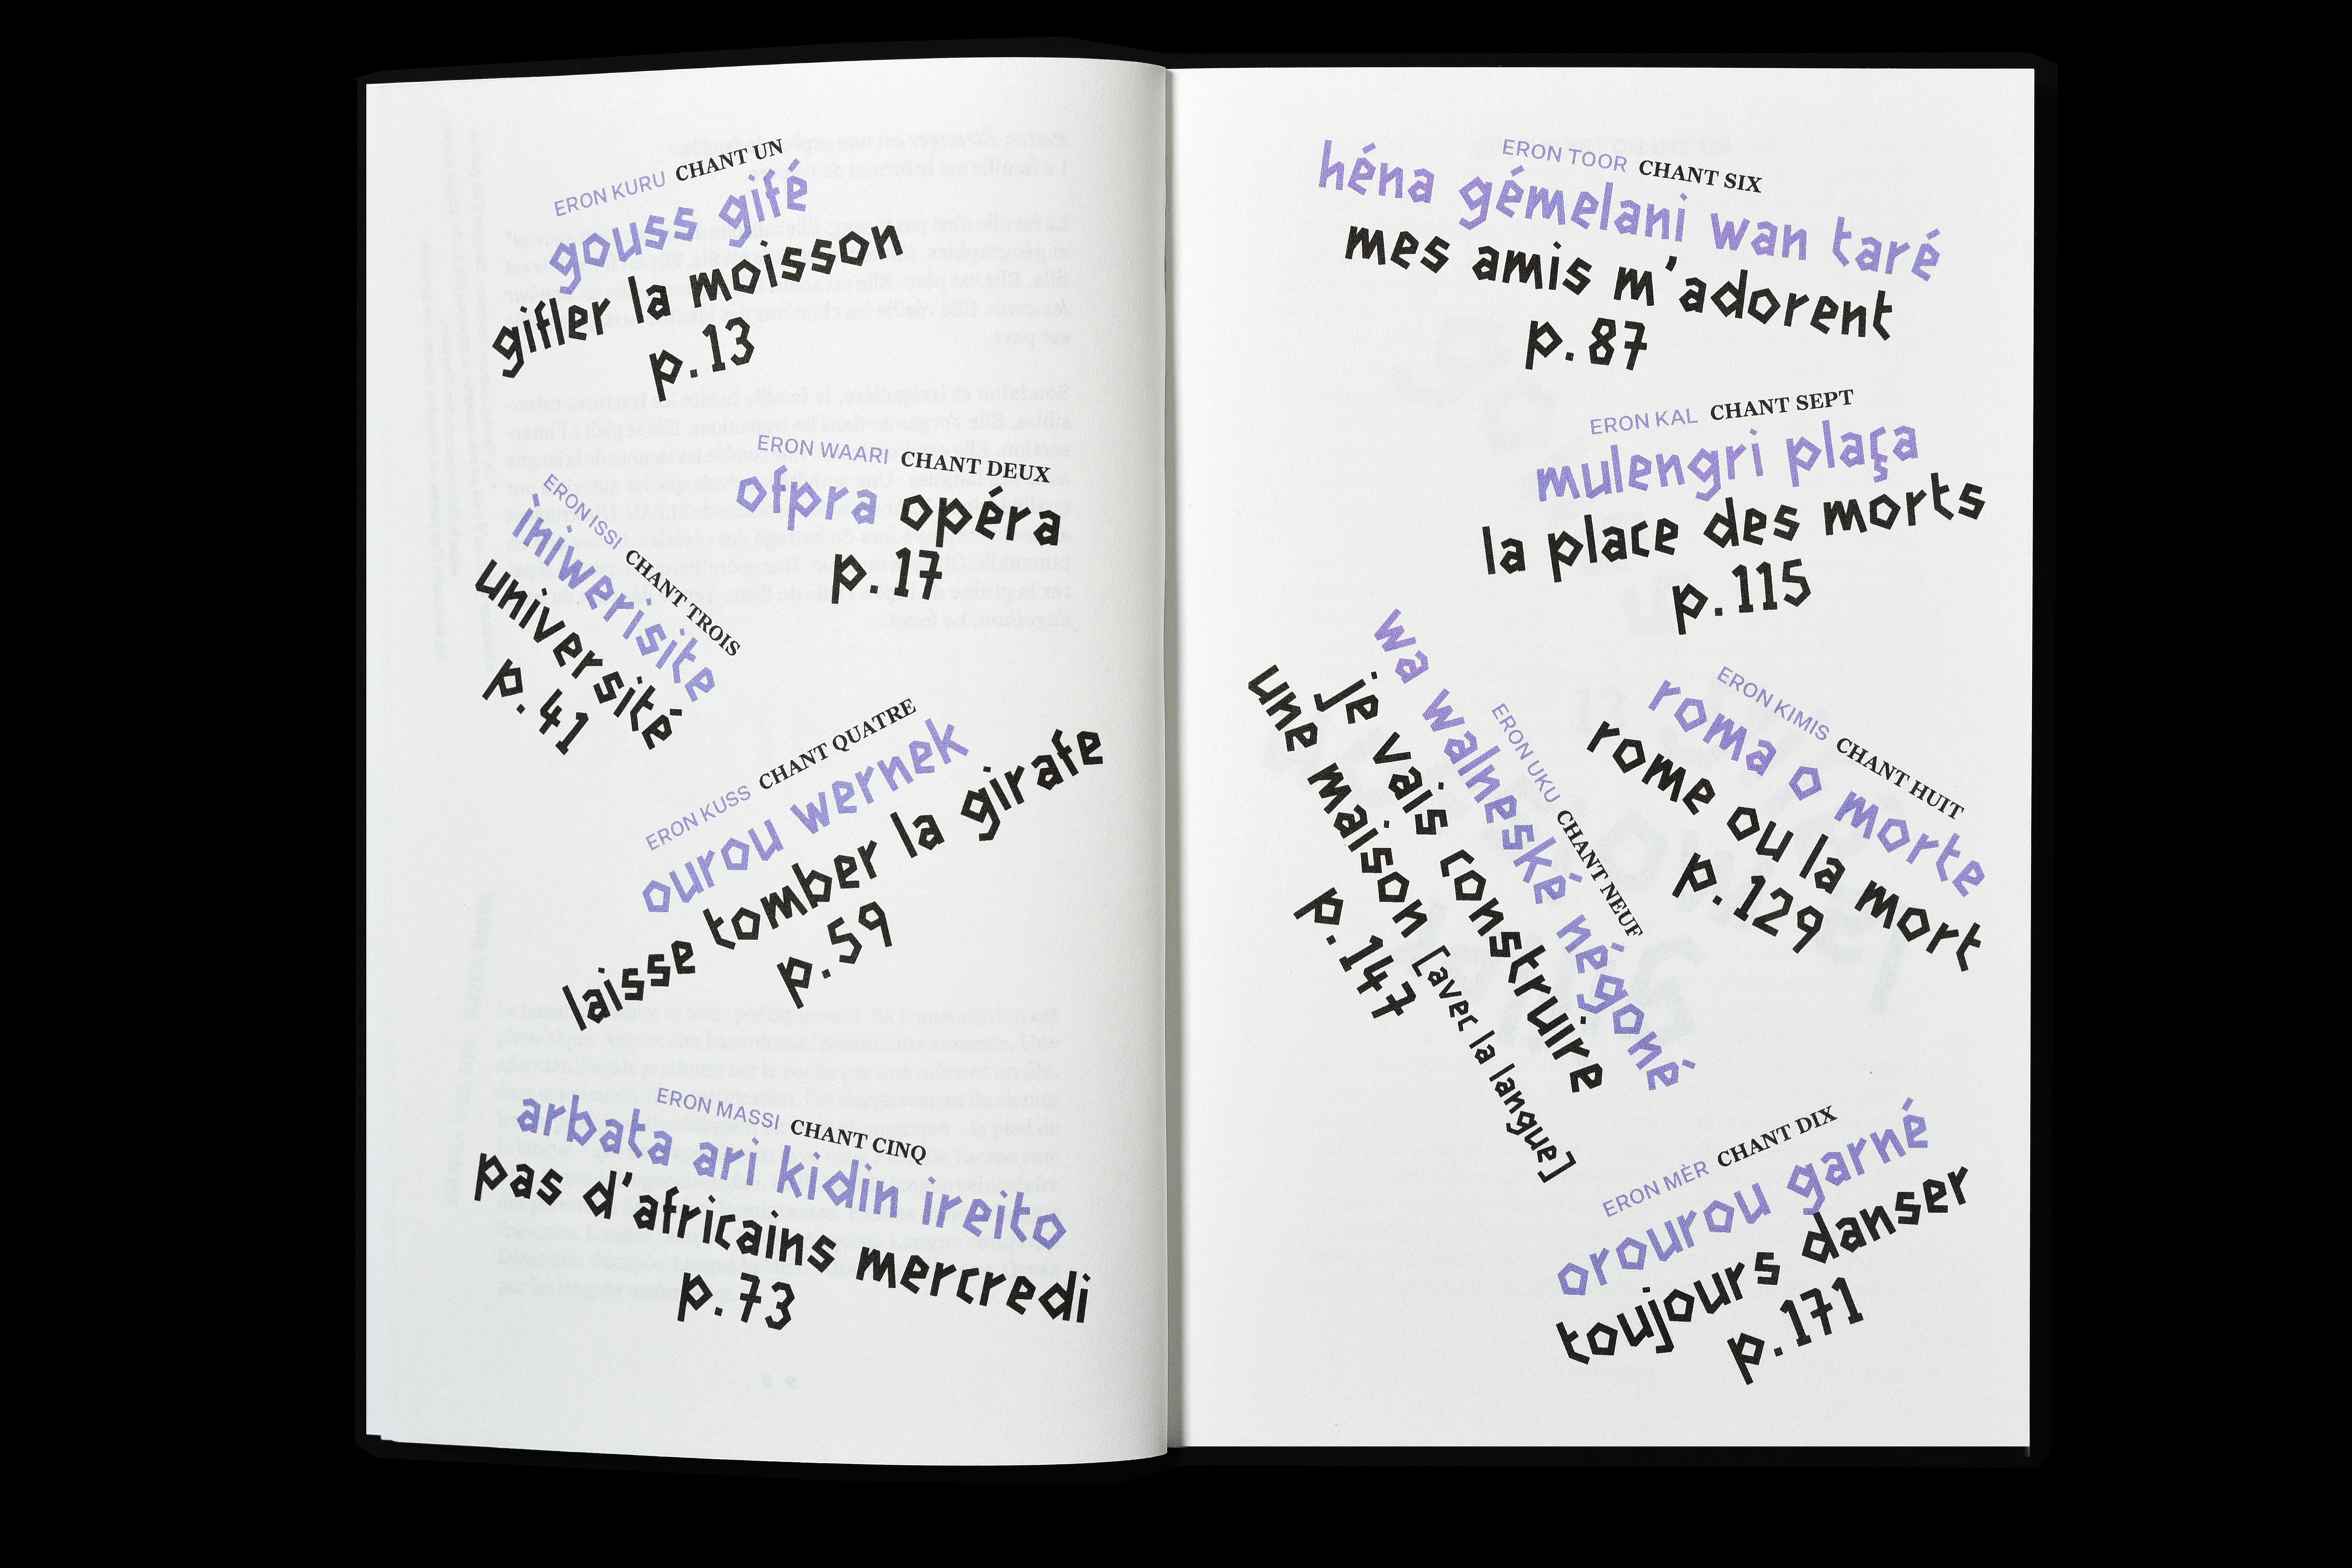 ERON KURU CHANT UN
gouss gifé
gifler la moisson
p.13
ERON WAARI CHANT DEUX
ofpra opéra
p.17
ERON ISSI CHANT TROIS
iniwerisite
université
p.41
ERON KUSS CHANT QUATRE
ourou wernek
laisse tomber la girafe
p.59
ERON MASSI CHANT CINQ
arbata ari kidin ireito
pas d'africains mercredi
p.73
ERON TOOR CHANT SIX
héna gémelani wan taré
mes amis m'adorent
p.87
ERON KAL CHANT SEPT
mulengri plaça
la place des morts
p.115
ERON KIMIS CHANT HUIT
roma o morte
rome ou la mort
p.129
ERON UKU CHANT NEUF
wa walneské négoné
je vais construire
une maison [avec la langue]
p.147
ERON MÈR CHANT DIX
orourou garné
toujours danser
p.171